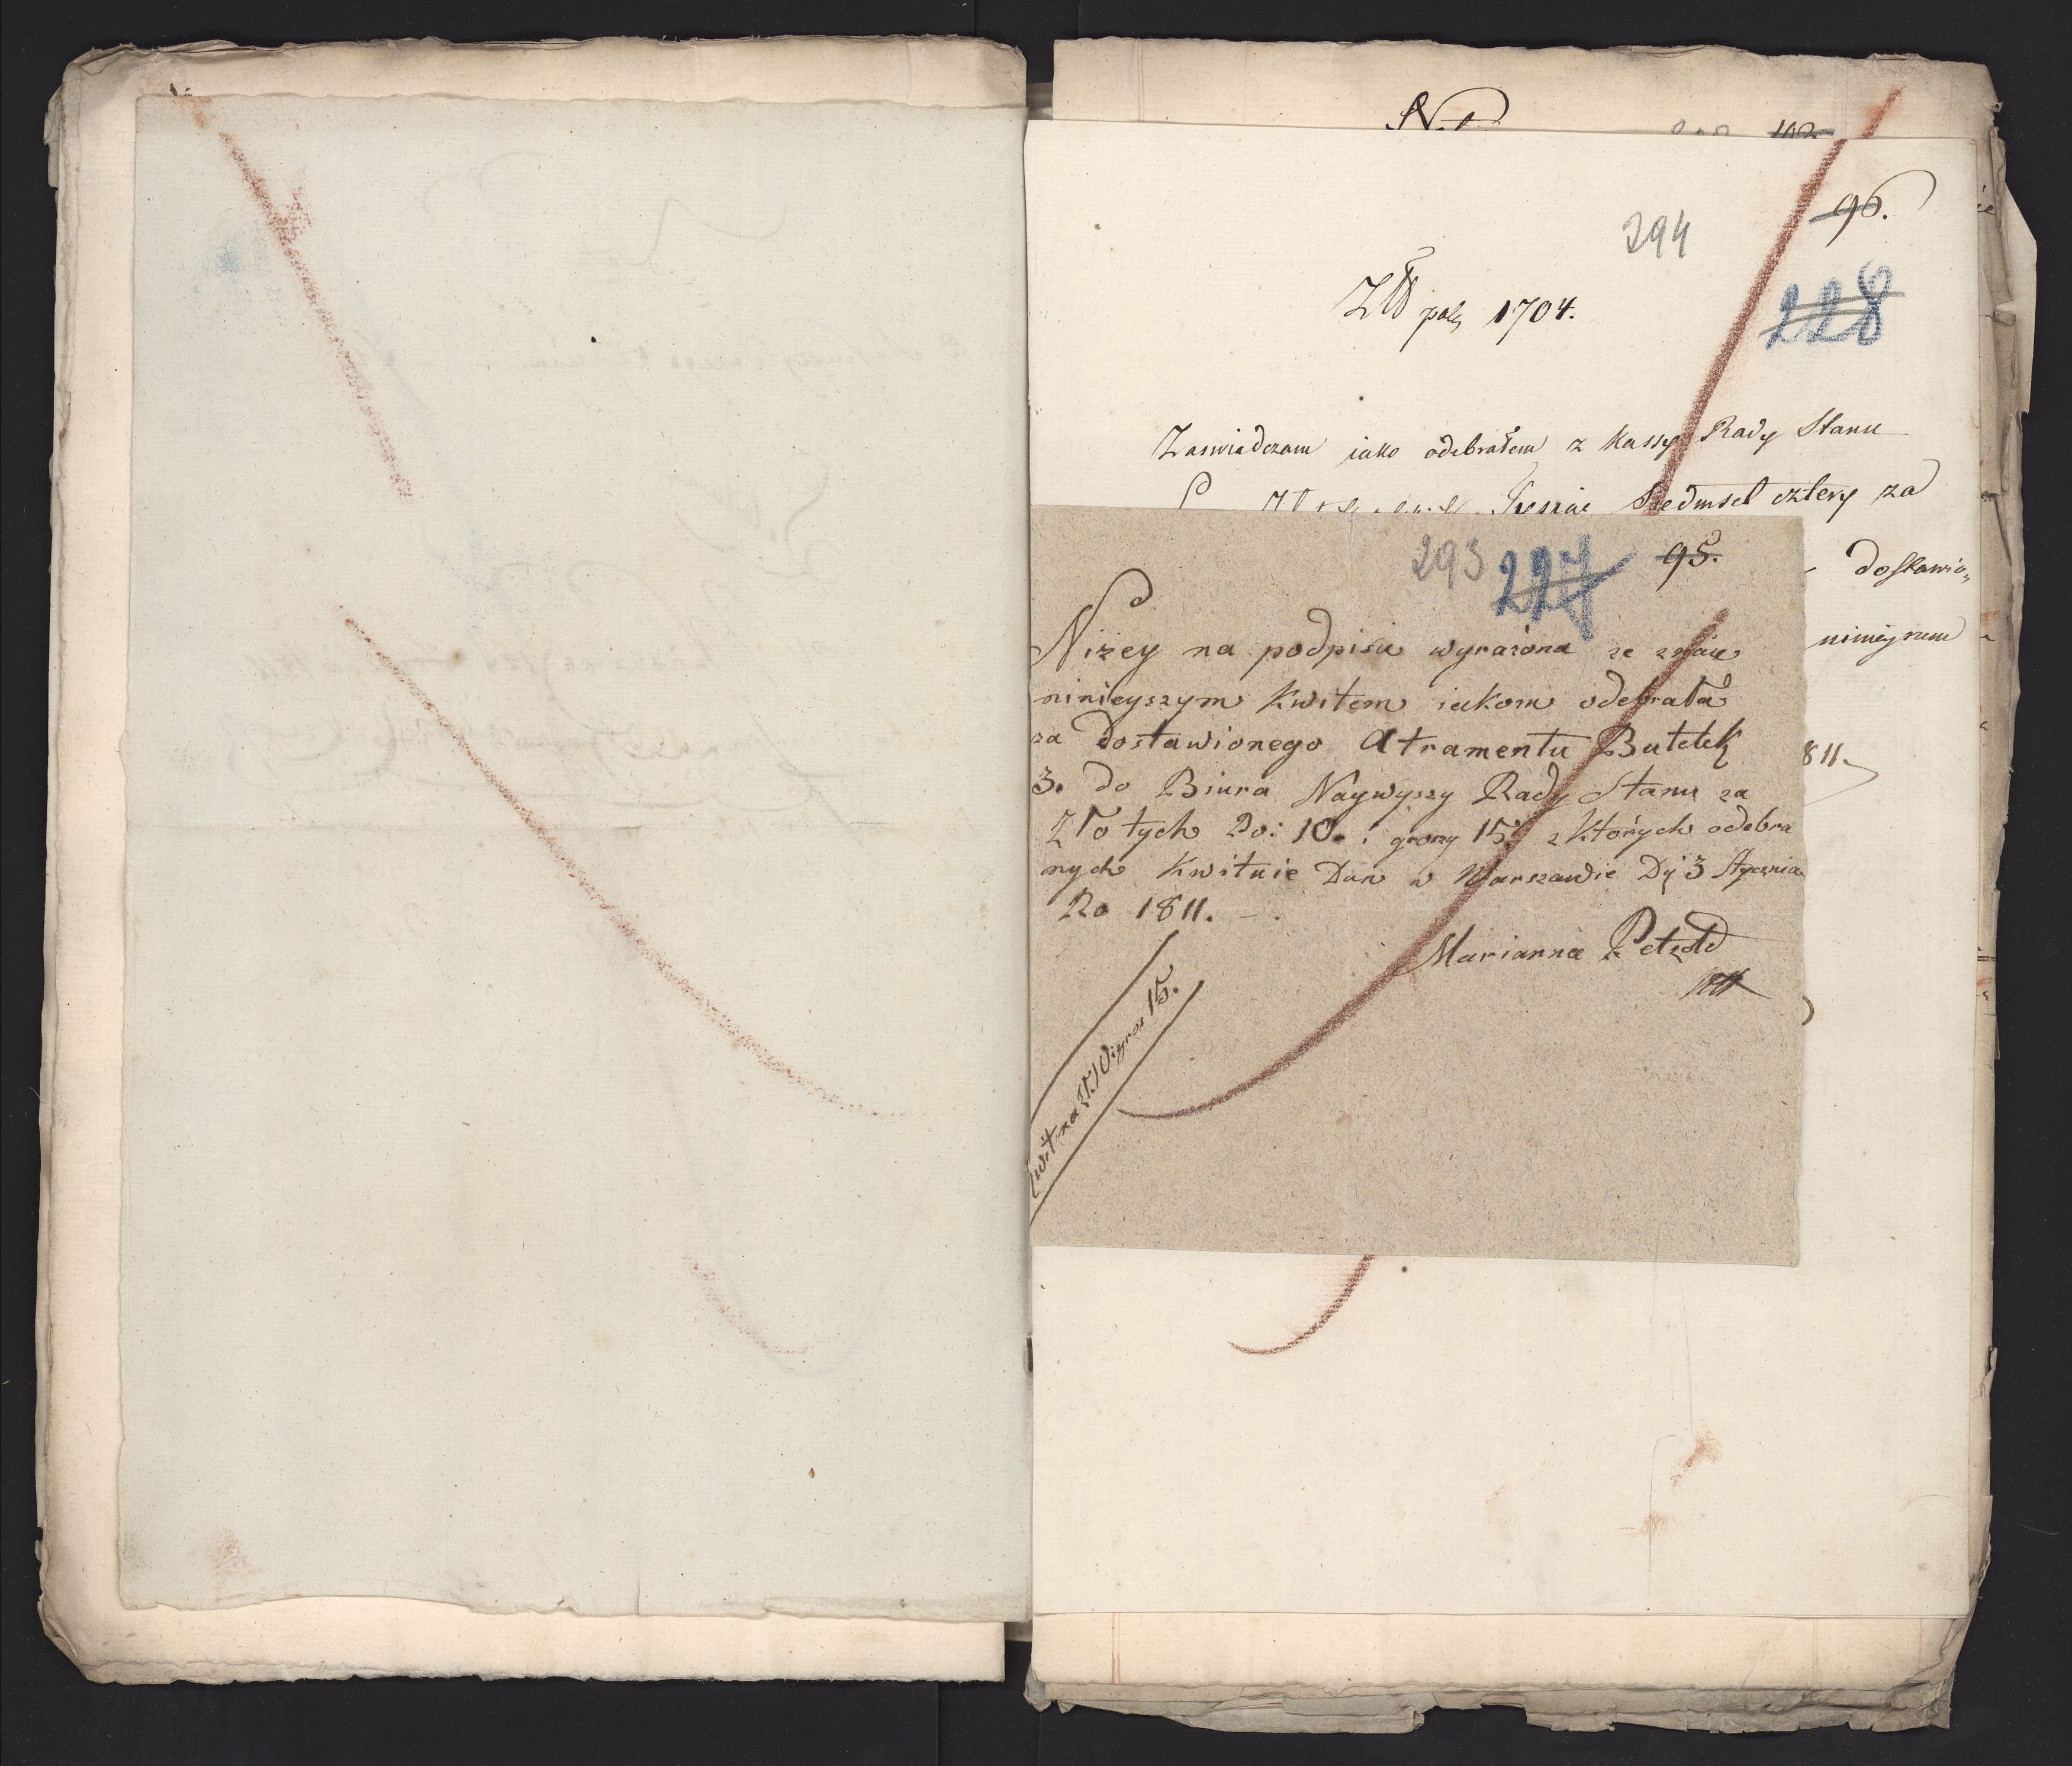 96.
294
228
Złł pols 1704.
Zaswiadczam iako odebrałem z Kassy Rady Stanu
Siedmset cztery za
dostawio„
ninieyszem
811.
293 227 95.
Niżey na podpisie wyrażona ze znaie
ninieyszym Kwitem iakom odebrała
za dostawionego Atramentu Butelek
3. do Biura Naywyszy Rady Stanu za
Złotych Po: 10. i groszy 15. z których odebra
nych Kwituie Dan w Warszawie Dj 3 Stycznia
Ro 1811. –.
Marianna Petzold
Kwit na Zł. 10 i gros 15.